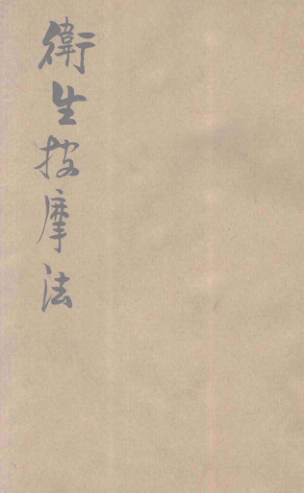 衛生按摩法